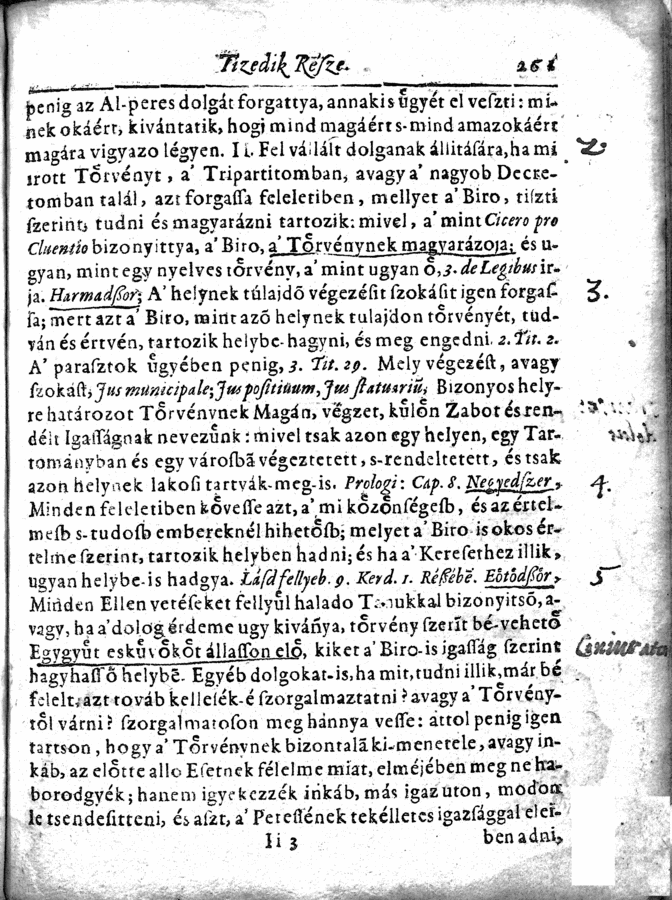 Tizedik Réſze. 261
penig az Al-peres dolgát forgattya, annakis ůgyét el veſzti: mi-
nek okáért, kivántatik, hogj mind magáért s-mind amazokáért
magára vigyazo légyen. II. Fel vállált dolganak állitáſára, ha mi
irott Tőrvényt, a' Tripartitomban, avagy a' nagyob Decre-
tomban talál, azt forgaſſa feleletiben, mellyet a' Biro, tiſzti
ſzerint, tudni és magyarázni tartozik: mivel, a' mint Cicero pro
Cluentio bizonyittya, a' Biro, a' Tőrvénynek magyarázoja; és u-
gyan, mint egy nyelves tőrvény, a' mint ugyan ő, 3. de Legibus ir-
ja. Harmadſzor; A' helynek túlajdō végezéſit ſzokáſit igen forgaſ-
ſa; mert azt a' Biro, mint azō helynek tulajdon tőrvényét, tud-
ván és értvén, tartozik helybe hagyni, és meg engedni. 2. Tit. 2.
A' paraſztok ůgyében penig, 3. Tit. 29. Mely végezéſt, avagy
ſzokáſt, Jus municipale, Jus poſitiuum, Jus ſtatuariū, Bizonyos hely-
re határozot Tőrvénynek Magán, végzet, kůlőn Zabot és ren-
délt Igaſſágnak nevezůnk: mivel tsak azon egy helyen, egy Tar-
tományban és egy városbā végeztetett, s-rendeltetett, és tsak
azon helynek lakoſi tartvák-meg-is. Prologi: Cap. 8. Negyedſzer,
Minden feleletiben kőveſſe azt, a' mi kőzőnſégesb, és az értel-
mesb s-tudosb embereknél hihetősb; melyet a' Biro-is okos ér-
telme ſzerint, tartozik helyben hadni; és ha a' Kereſethez illik,
ugyan helybe-is hadgya. Láſd fellyeb. 9. Kerd. 1. Réſzébē. Eőtődſzőr,
Minden Ellen vetéſeket fellyůl halado Tanukkal bizonyitsō, a-
vagy, ha a' dolog érdeme ugy kiváña, tőrvény ſzerīt bé-vehető
Egygyůt eskůvőkőt állaſſon elő, kiket a' Biro-is igaſſág ſzerint
hagyhaſſō helybē. Egyéb dolgokat-is, ha mit, tudni illik, már bé
felelt, azt továb kelleſék-é ſzorgalmaztatni? avagy a' Tőrvény-
től várni? ſzorgalmatoſon meg hánnya veſſe: attol penig igen
tartson, hogy a' Tőrvénynek bizontalā ki-menetele, avagy in-
káb, az előtte allo Eſetnek félelme miat, elméjében meg ne há-
borodgyék; hanem igyekezzék inkáb, más igaz uton, modon
le tsendeſitteni, és aſzt, a' Pereſſének tekélletes igazſággal elei-
Ii 3 ben adni,
2.
3.
4.
5